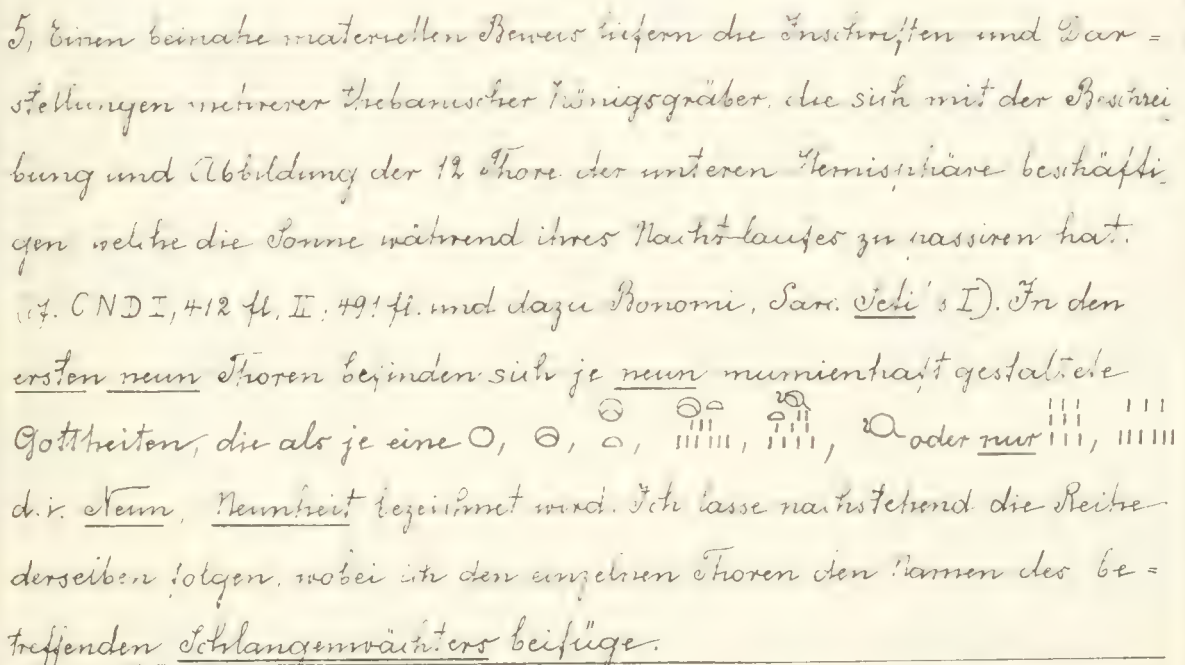 5, Einen beinahe materiellen Beweis liefern die Inschriften und Dar=
stellungen mehrerer thebanischer Königsgräber, die sich mit der Beschrei
bung und Abbildung der 12 Thore der unteren Hemisphäre beschäfti,
gen welche die Sonne während ihres Nachtlaufes zu passiren hat.
cf. CND I, 412 fl, II, 491 fl. und dazu Bonomi, Sarc. Seti's I). In den
ersten neun Thoren befinden sich je neun mumienhaft gestaltete
Gottheiten, die als je eine oder nur
d.i. Neun, Neunheit bezeichnet wird. Ich lasse nachstehend die Reihe
derselben folgen, wobei ich den einzelnen Thoren den Namen des be=
treffenden Schlangenwächters beifüge.